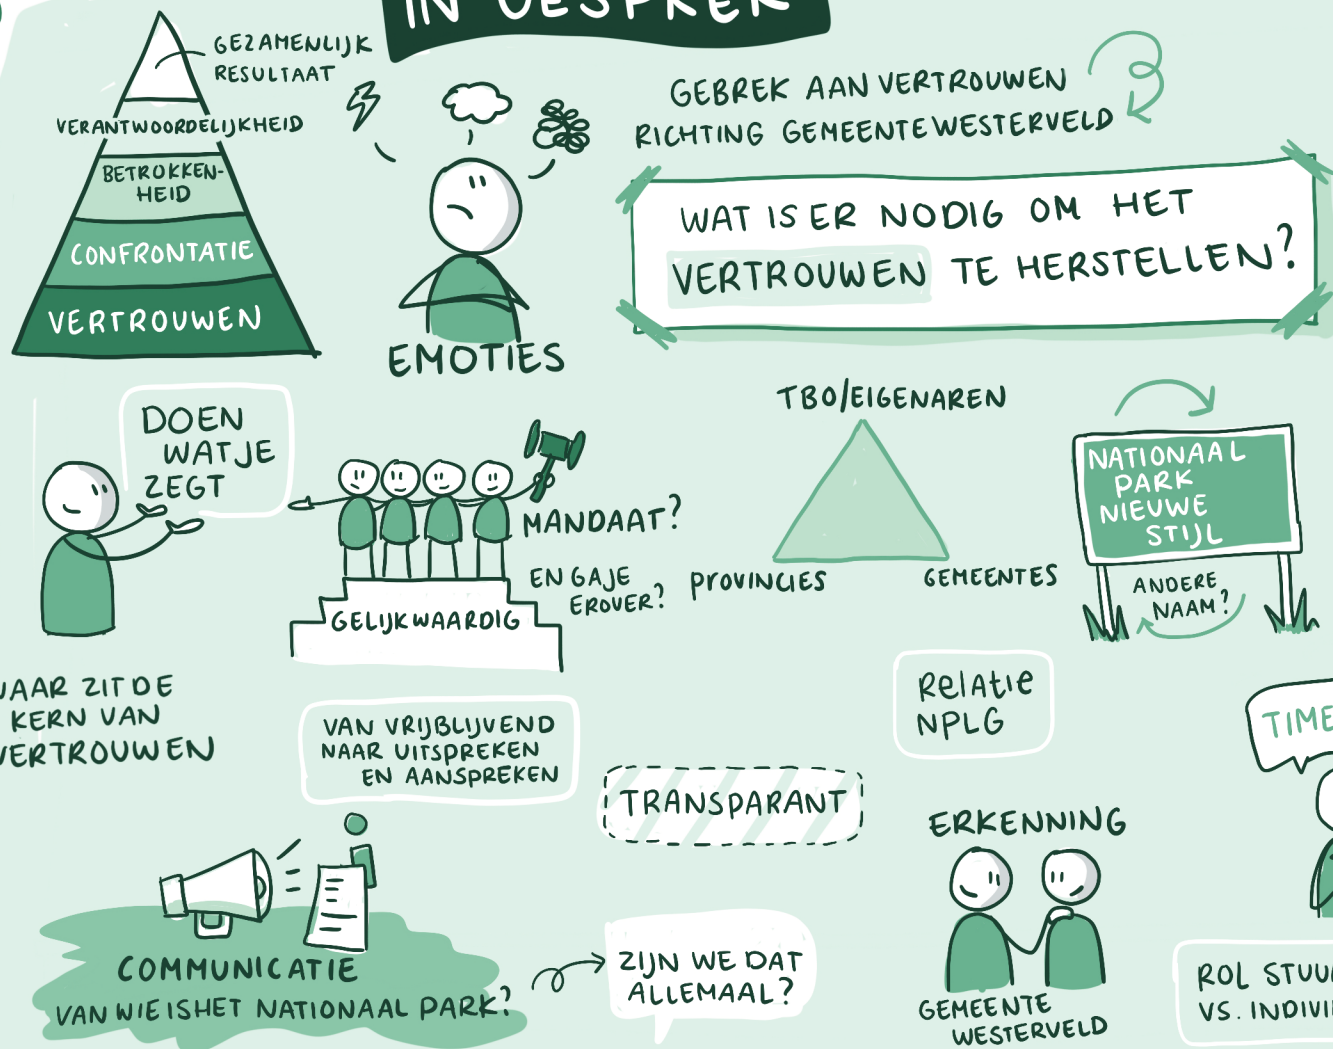 IN GESPREK
GEZAMENLIJK
RESULTAAT
VERANTWOORDELIJKHEID
BETROKKEN-
HEID
CONFRONTATIE
VERTROUWEN
EMOTIES
GEBREK AAN VERTROUWEN
RICHTING GEMEENTE WESTERVELD
WAT IS ER NODIG OM HET
VERTROUWEN TE HERSTELLEN?
DOEN
WAT JE
ZEGT
MANDAAT?
EN GA JE
EROVER?
GELIJKWAARDIG
TBO/EIGENAREN
PROVINCIES
GEMEENTES
NATIONAAL
PARK
NIEUWE
STIJL
ANDERE
NAAM?
WAAR ZIT DE
KERN VAN
VERTROUWEN
VAN VRIJBLIJVEND
NAAR UITSPREKEN
EN AANSPREKEN
TRANSPARANT
RELATIE
NPLG
TIME
ERKENNING
GEMEENTE
WESTERVELD
COMMUNICATIE
VAN WIE IS HET NATIONAAL PARK?
ZIJN WE DAT
ALLEMAAL?
ROL STUU
VS. INDIVI